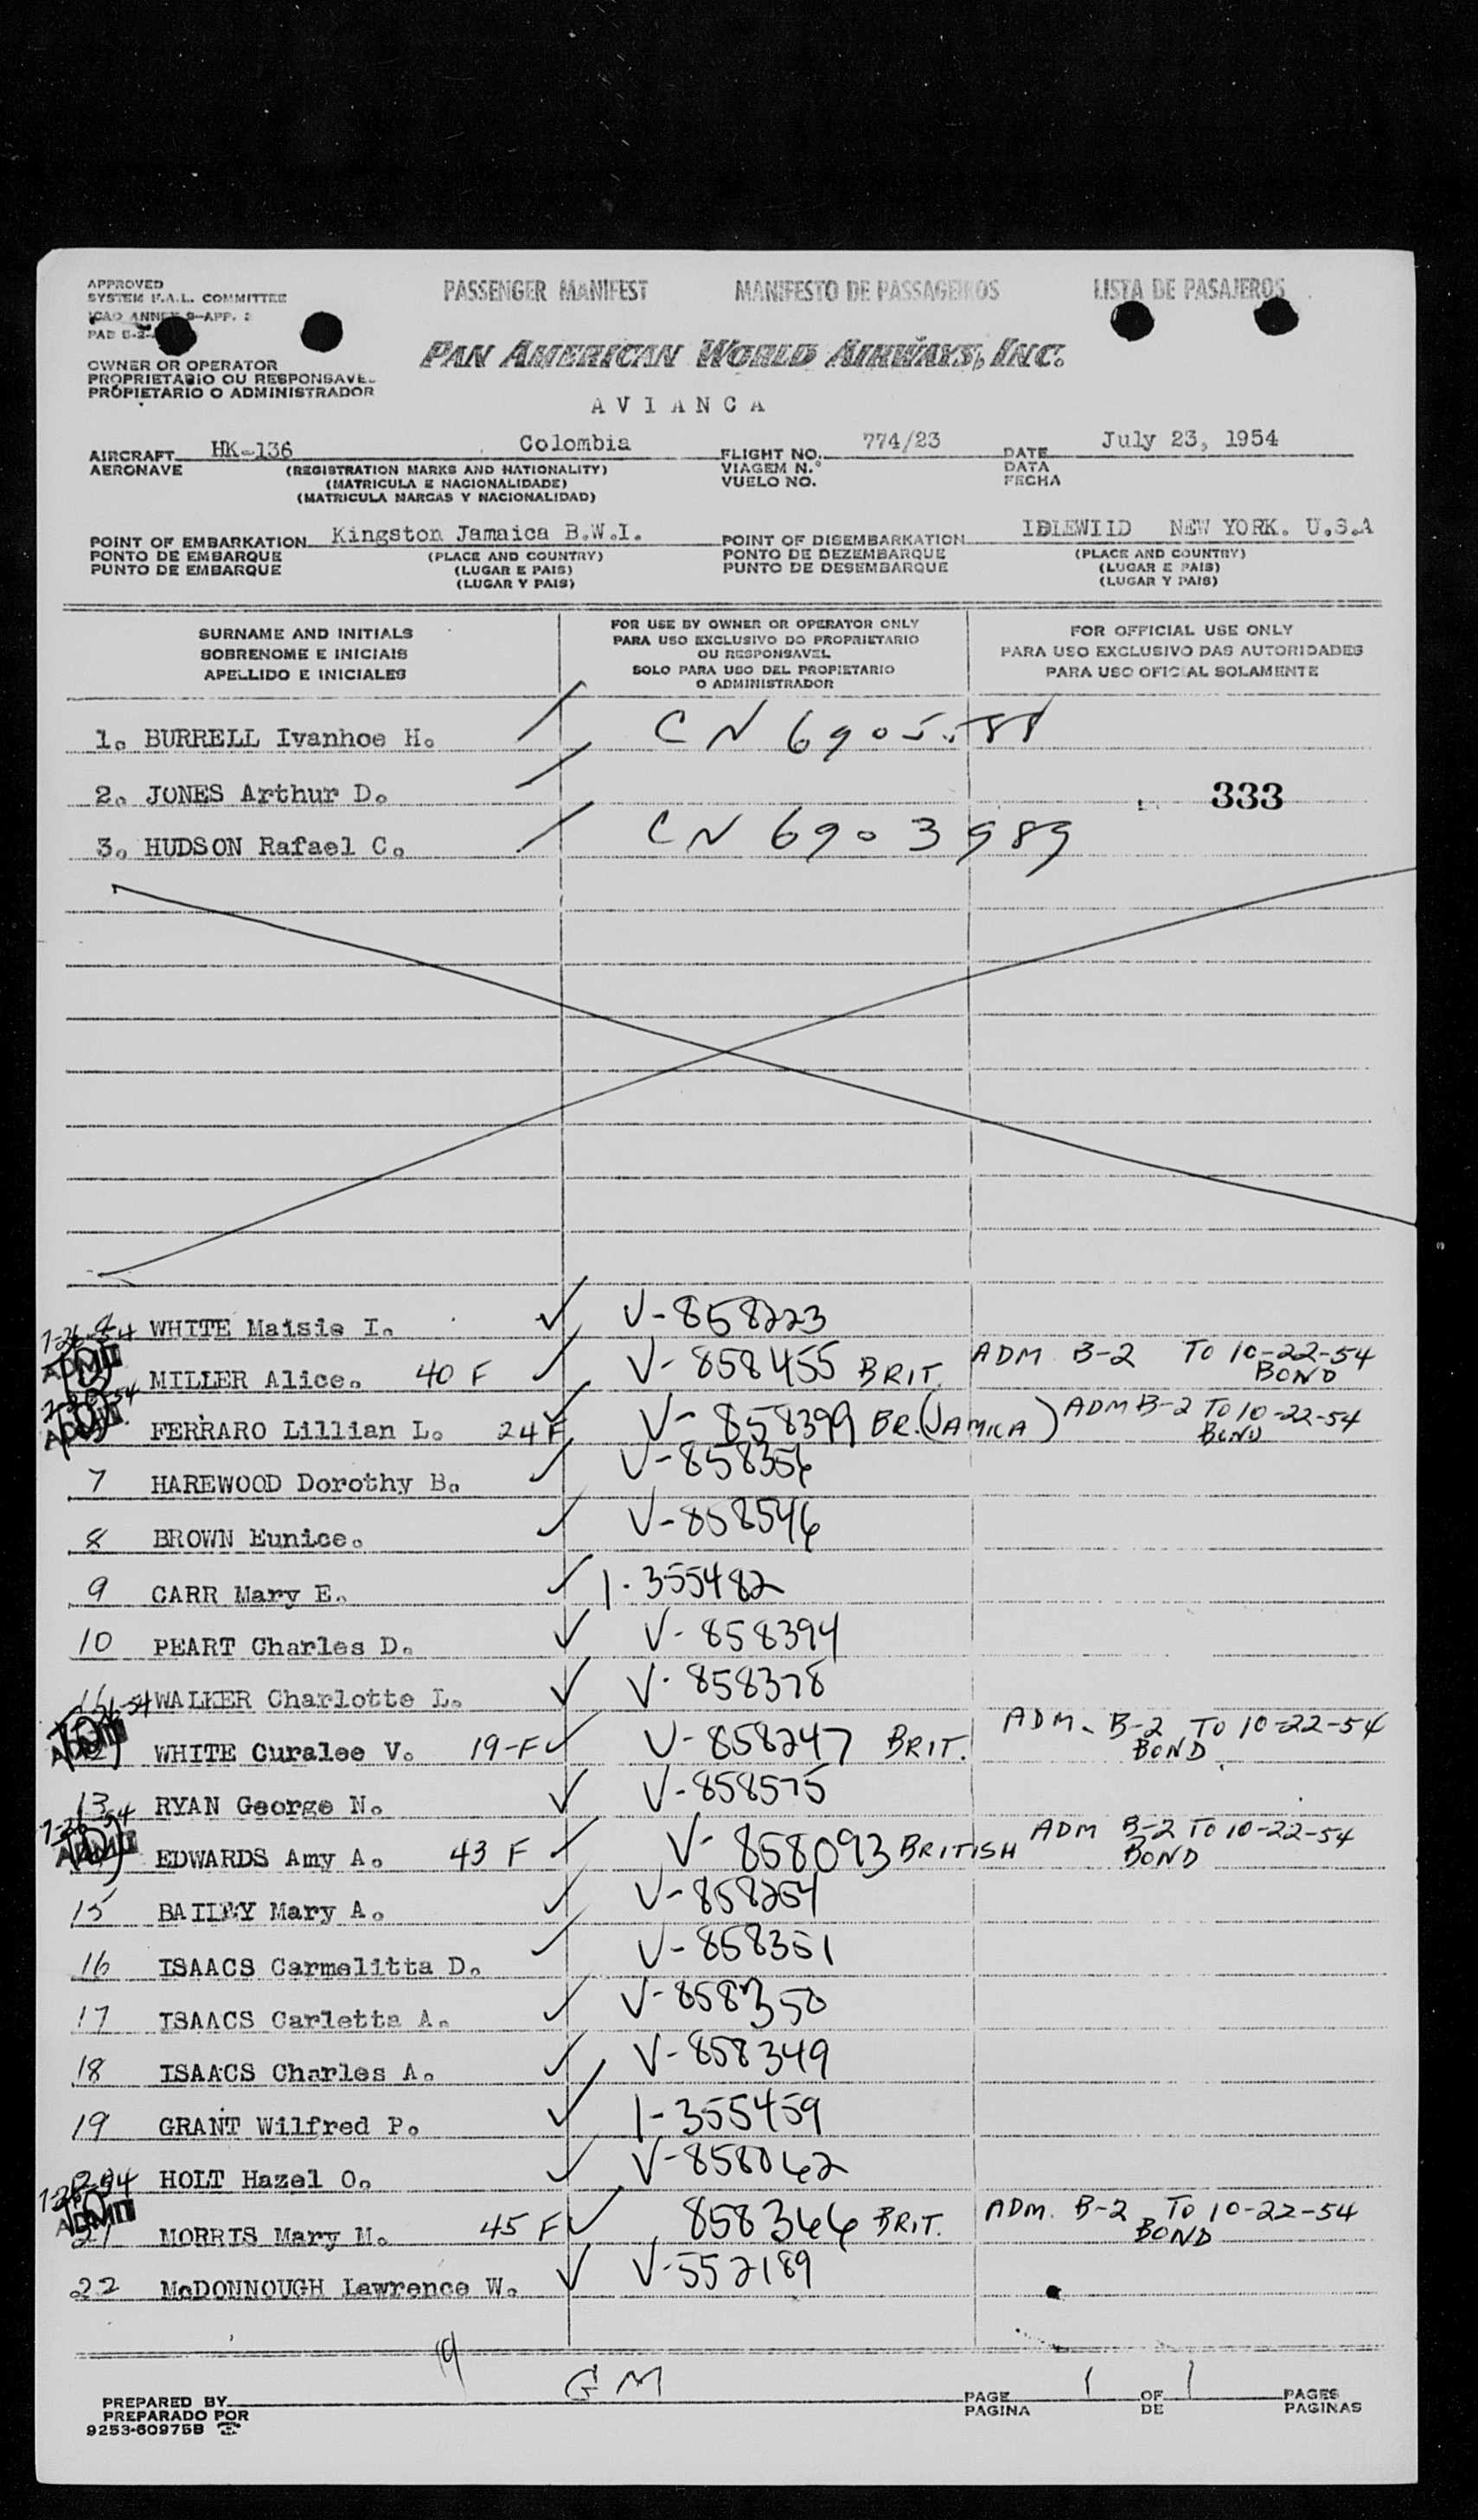 APPROVED
SYSTEM F.A.L. COMMITTEE
ICAO ANNEX 9-APP. 2
PAD
PASSENGER MANIFEST MANIFESTO DE PASSAGEIROS LISTA DE PASAJEROS
PAN AMERICAN WORLD AIRWAYS, INC.
OWNER OR OPERATOR
PROPRIETARIO OU RESPONSAVEL
PROPIETARIO O ADMINISTRADOR
AVIANCA
AIRCRAFT HK-136 Colombia FLIGHT NO. 774/23 DATE July 23, 1954
AERONAVE (REGISTRATION MARKS AND NATIONALITY) VIAGEM N.° DATA
(MATRICULA E NACIONALIDADE) VUELO NO. FECHA
(MATRICULA MARCAS Y NACIONALIDAD)
POINT OF EMBARKATION Kingston Jamaica B.W.I. POINT OF DISEMBARKATION IDLEWILD NEW YORK. U.S.A
PONTO DE EMBARQUE (PLACE AND COUNTRY) PONTO DE DEZEMBARQUE (PLACE AND COUNTRY)
PUNTO DE EMBARQUE (LUGAR E PAIS) PUNTO DE DESEMBARQUE (LUGAR E PAIS)
(LUGAR Y PAIS) (LUGAR Y PAIS)
SURNAME AND INITIALS
SOBRENOME E INICIAIS
APELLIDO E INICIALES
FOR USE BY OWNER OR OPERATOR ONLY
PARA USO EXCLUSIVO DO PROPRIETARIO
OU RESPONSAVEL
SOLO PARA USO DEL PROPIETARIO
O ADMINISTRADOR
FOR OFFICIAL USE ONLY
PARA USO EXCLUSIVO DAS AUTORIDADES
PARA USO OFICIAL SOLAMENTE
1. BURRELL Ivanhoe H. CN
2. JONES Arthur D. 333
3. HUDSON Rafael C. CN 6903989
4 WHITE Maisie I. V-858223
7-26-54 ADMIT MILLER Alice. 40 F V-858455 BRIT. ADM B-2 TO 10-22-54 BOND
FERRARO Lillian L. 24 F V-858399 BR. (JAMICA) ADM B-2 TO 10-22-54 BOND
7 HAREWOOD Dorothy B. V-858356
8 BROWN Eunice. V-858546
9 CARR Mary E. 1-355482
10 PEART Charles D. V-858394
11 WALKER Charlotte L. V-858378
WHITE Curalee V. 19-F V-858247 BRIT. ADM. B-2 TO 10-22-54 BOND
13 RYAN George N. V-858575
EDWARDS Amy A. 43 F V-858093 BRITISH ADM B-2 TO 10-22-54 BOND
15 BAILEY Mary A. V-858254
16 ISAACS Carmelitta D. V-858351
17 ISAACS Carletta A. V-858350
18 ISAACS Charles A. V-858349
19 GRANT Wilfred P. 1-355459
20 HOLT Hazel O. V-858062
21 MORRIS Mary M. 45 F 858366 BRIT. ADM. B-2 TO 10-22-54 BOND
22 McDONNOUGH Lawrence W. V-552189
19 GM
PREPARED BY PAGE 1 OF 1 PAGES
PREPARADO POR PAGINA DE PAGINAS
9253-60975B